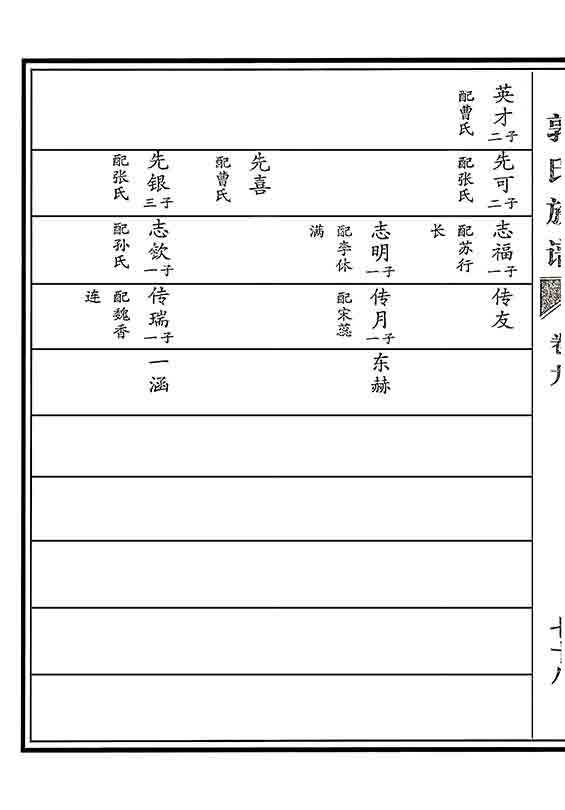 郭氏族谱
卷九
七十八
英才 二子
配曹氏
先可 二子
配张氏
先喜
配曹氏
先银 三子
配张氏
志福 一子
配苏行
长
志明 一子
配李休
满
志欽 一子
配孙氏
传友
传月 一子
配宋蕊
传瑞 一子
配魏香
连
东赫
一涵